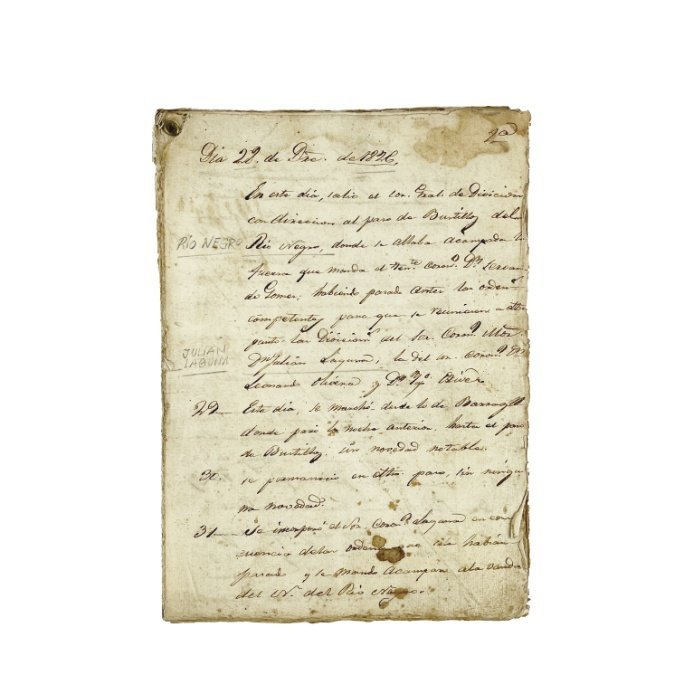 2ª
Dia 22. de Dre. de 1826,
En este dia, salio el Sor. Gral. de Division
con direccion al paso de Bustillos del
RÍO NEGRO
Rio Negro, donde se allaba acampada la
fuerza que manda el Tente. Coronl. Dn. Servan
de Gomez; habiendo pasado antes las ordens.
competentes para que se reuniesen a dho
punto las Divisions. del Sor. Coronl.
JULIAN LAGUNA
Dn. Julian Laguna, la del Sor. Coronl. Dn.
Leonardo Olivera y Dn. Ygo. Oribe
29— Este dia, se marchó desde lo de
donde pasó la noche anterior, hasta el paso
de Bustillos sin novedad notable.
30. se permaneció en dho. paso, sin ningu
na novedad.
31— Se incorporó el Sor. Coronl. Laguna en con
suencia de las ordens. que se le habian
pasado y se mandó acampar a la vanda
del N. del Rio Negro.